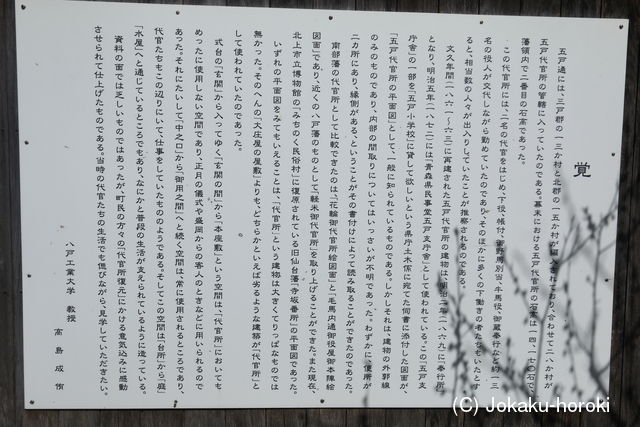 覚
五戸通には、三戸郡の一三か村と北郡の一五か村が編入されており、合わせて二八か村が
五戸代官所の管轄に入っていたのである。幕末における五戸代官所の石高は一四、一七〇石で
藩領内で二番目の石高であった。
この代官所には、二名の代官をはじめ、下役、帳付、御野馬別当、牛馬役、御蔵奉行など約一三
名の役人が交代しながら勤めていたのであり、そのほかに多くの下働きの者たちもいたとす
ると、相当数の人々が出入りしていたことが推察されるのである。
文久年間(一八六一〜六三)に再建された五戸代官所の建物は、明治二年(一八六九)に「奉行所」
となり、明治五年(一八七二)には「青森県民事堂五戸支庁舎」として使われている。この「五戸支
庁舎」の一部を「五戸小学校」に貸して欲しいという県庁土木係に宛てた伺書に添付した図面が、
「五戸代官所の平面図」として、一般に知られているものである。しかしそれは、建物の外郭線
のみのものであり、内部の間取りについてはいっさいが不明であった。わずかに、便所が
二カ所にあり、縁側がある、ということがその書付けによって読み取ることができたのであった。
南部藩の代官所として比較できたのは、「花輪御代官所絵図面」と、「毛馬内通御役屋御本陣絵
図面」であり、近くの八戸藩のものとして「軽米御代官所」を取り上げることができた。また現在、
北上市立博物館の「みちのく民俗村」に復原されている旧仙台藩「寺坂番所」の平面図であった。
いずれの平面図をみてもいえることは、「代官所」という建物は大きくてりっぱなものでは
無かった。そのへんの「大庄屋の屋敷」よりも、どちらかといえば劣るような建築が「代官所」と
して使われていたのであった。
式台の「玄関」から入ってゆく「玄関の間」から「本座敷」という空間は、「代官所」においても
めったに使用しない空間であり、正月の儀式や盛岡からの客人のときなどに用いられるので
あった。それにたいして「中之口」から「御用之間」へと続く空間は、常に使用されるところであり、
代官たちもこの辺りにいて、仕事をしていたもののようである。そしてこの空間は「台所」から「庭」
「水屋」へと通じているところでもあり、なにかと普段の生活が支えられているように造っている。
資料の面では乏しいものではあったが、町民の方々の「代官所復元」にかける意気込みに感動
させられて仕上げたものである。当時の代官たちの生活でも偲びながら、見学していただきたい。
八戸工業大学 教授
高島成侑
(C) Jokaku-horoki